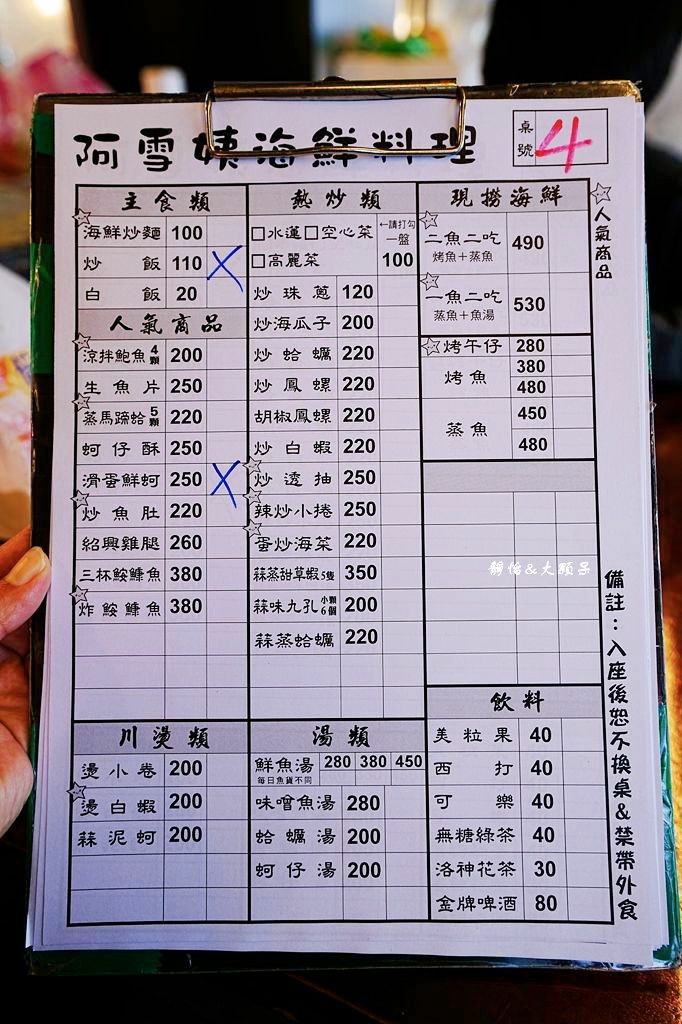 阿雪姨海鮮料理
桌號 4
☆人氣商品
主食類
海鮮炒麵 100
炒飯 110 X
白飯 20
人氣商品
涼拌鮑魚4顆 200
生魚片 250
蒸馬蹄蛤5顆 220
蚵仔酥 250
滑蛋鮮蚵 250 X
炒魚肚 220
紹興雞腿 260
三杯鮟鱇魚 380
炸鮟鱇魚 380
川燙類
燙小卷 200
燙白蝦 200
蒜泥蚵 200
熱炒類
□水蓮□空心菜
□高麗菜
←請打勾
一盤
100
炒珠蔥 120
炒海瓜子 200
炒蛤蠣 220
炒鳳螺 220
胡椒鳳螺 220
炒白蝦 220
炒透抽 250
辣炒小捲 250
蛋炒海菜 220
蒜蒸甜草蝦5隻 350
蒜味九孔小顆6個 200
蒜蒸蛤蠣 220
湯類
鮮魚湯 280 380 450
每日魚貨不同
味噌魚湯 280
蛤蠣湯 200
蚵仔湯 200
現撈海鮮
二魚二吃 490
烤魚+蒸魚
一魚二吃 530
蒸魚+魚湯
烤午仔 280
烤魚 380
480
蒸魚 450
480
靜怡&大顆呆
飲料
美粒果 40
西打 40
可樂 40
無糖綠茶 40
洛神花茶 30
金牌啤酒 80
備註:入座後恕不換桌&禁帶外食